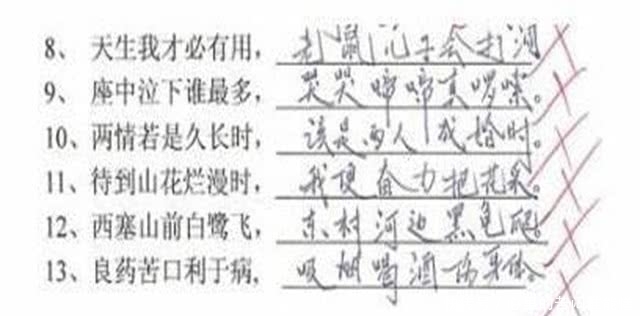 8、天生我才必有用，老鼠儿子会打洞
9、座中泣下谁最多，哭哭啼啼真啰嗦。
10、两情若是久长时，该是两人成婚时。
11、待到山花烂漫时，我便奋力把花采。
12、西塞山前白鹭飞，东村河边黑龟爬。
13、良药苦口利于病，吸烟喝酒伤身体。